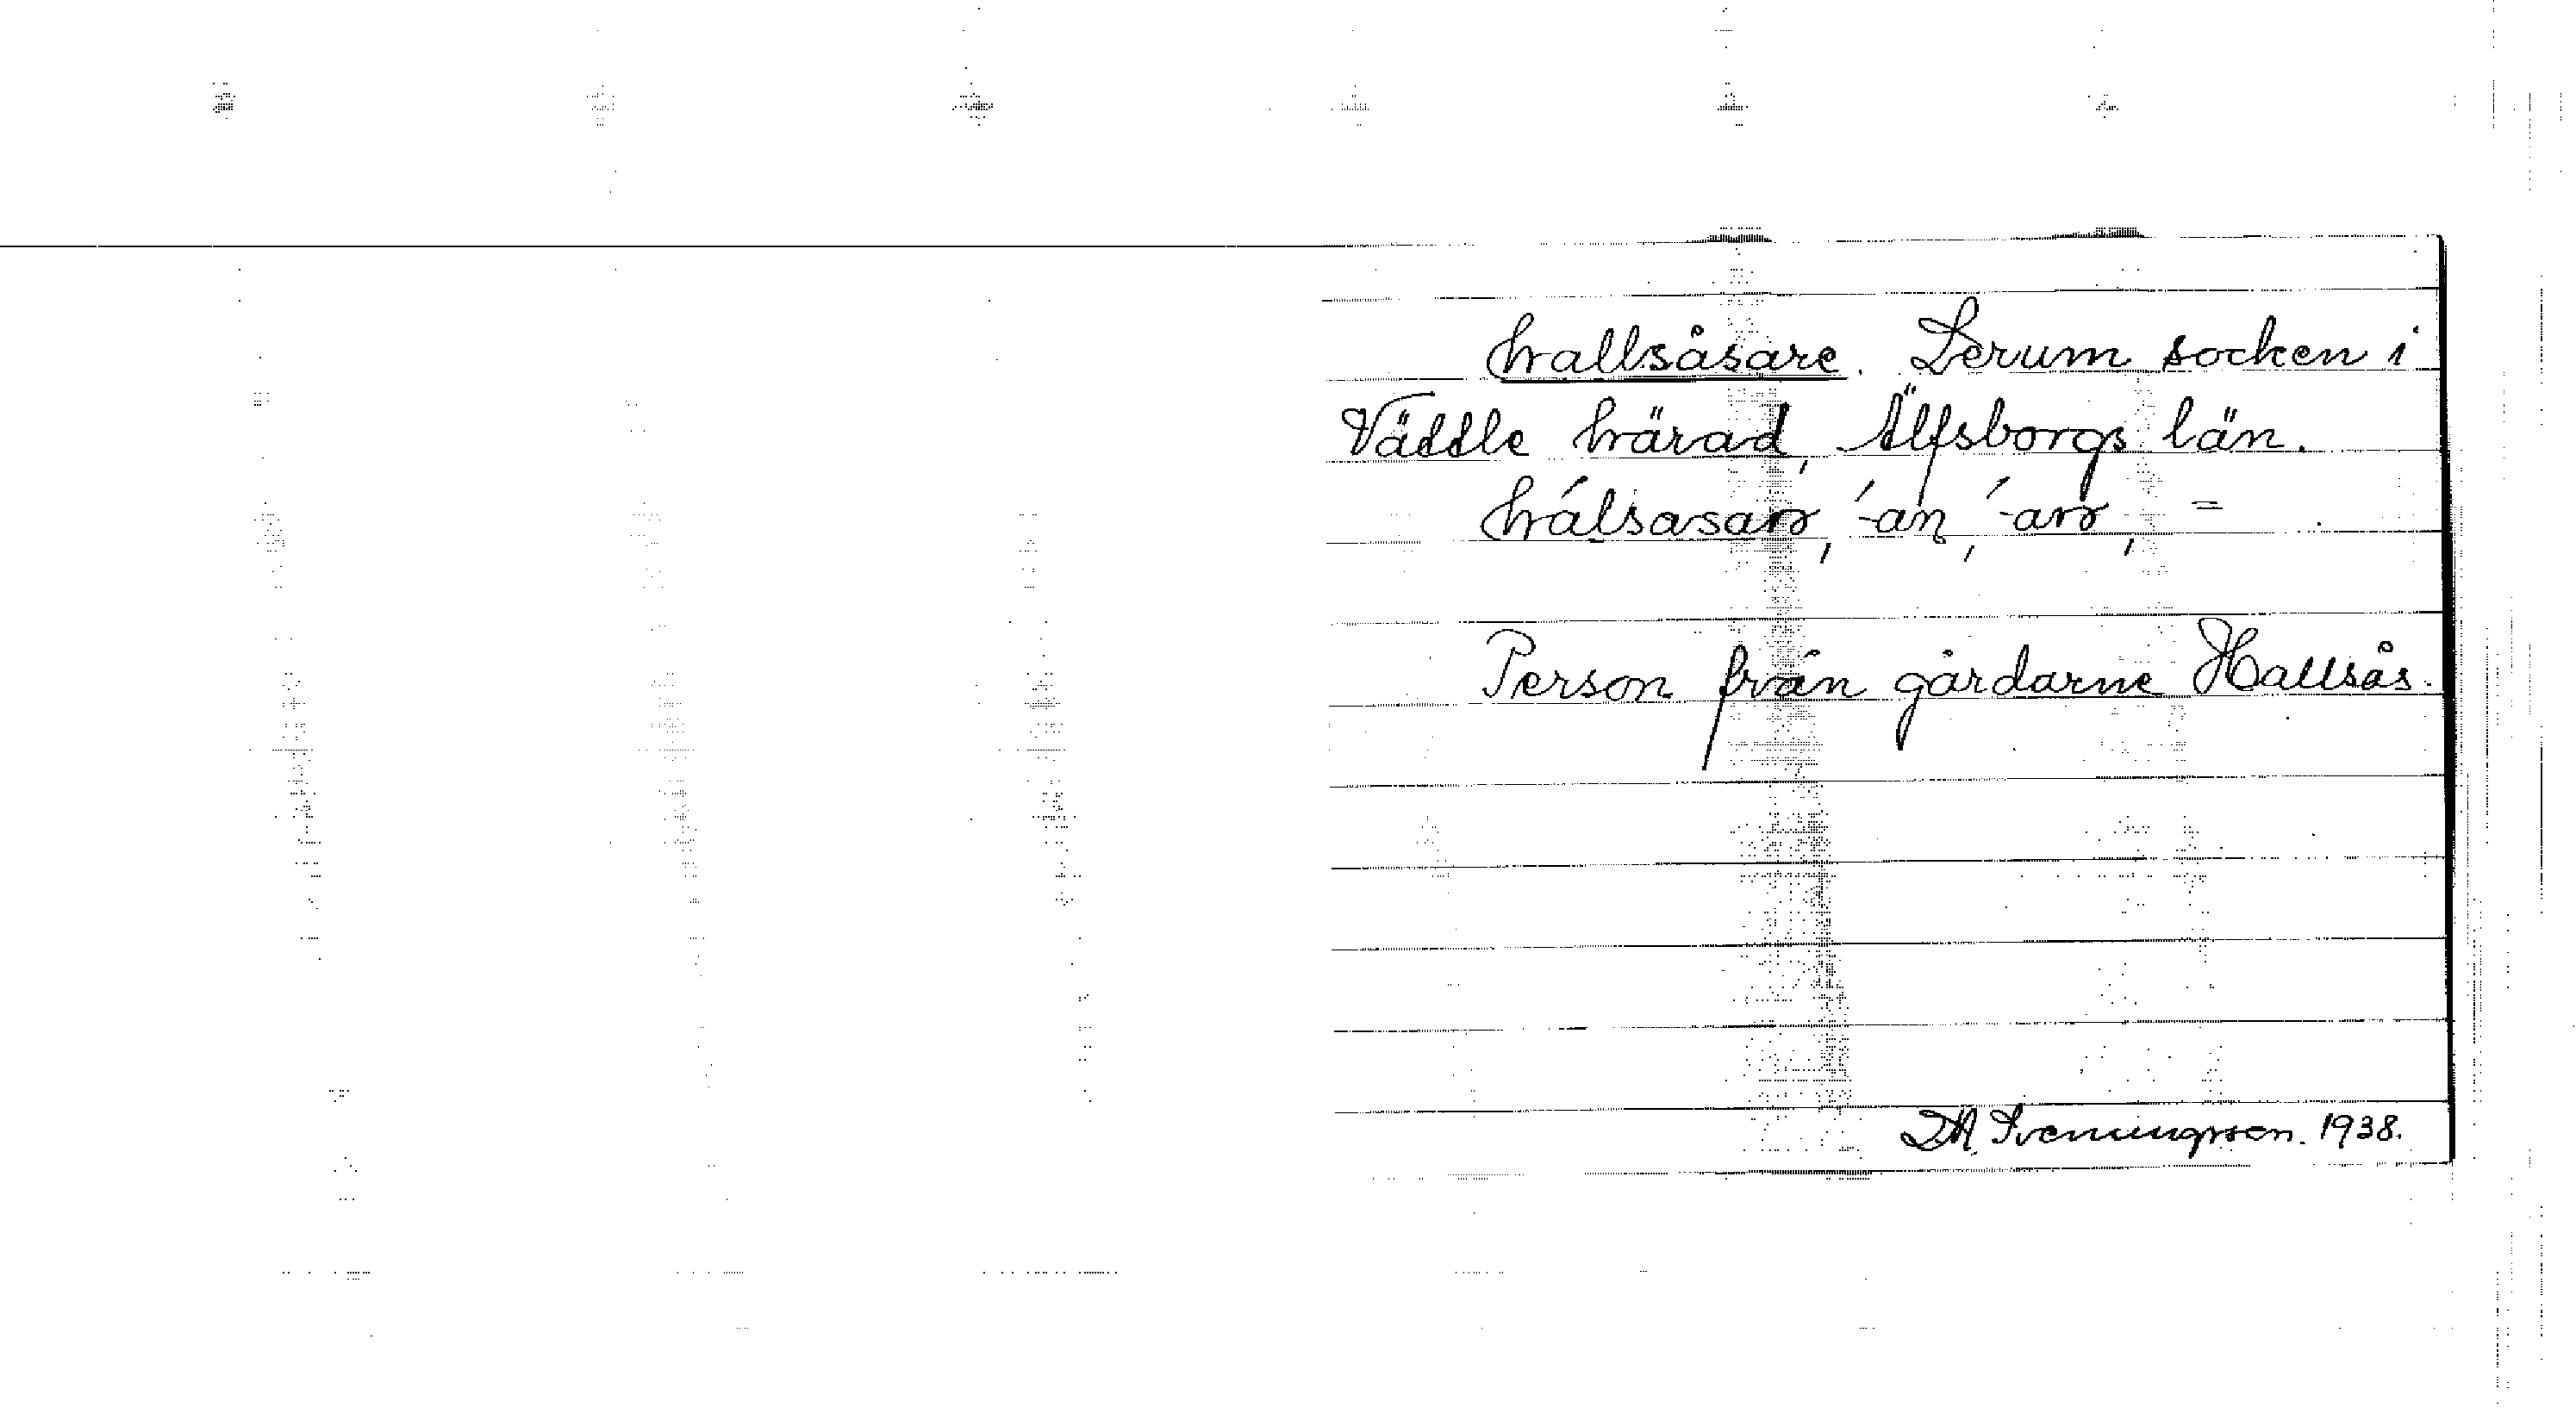 hallsåsare. Lerum socken i
Vättle härad, Älfsborgs län.
hálsasarr, ́-an, ́-arr, =
Person från gårdarne Hallsås.
1938.